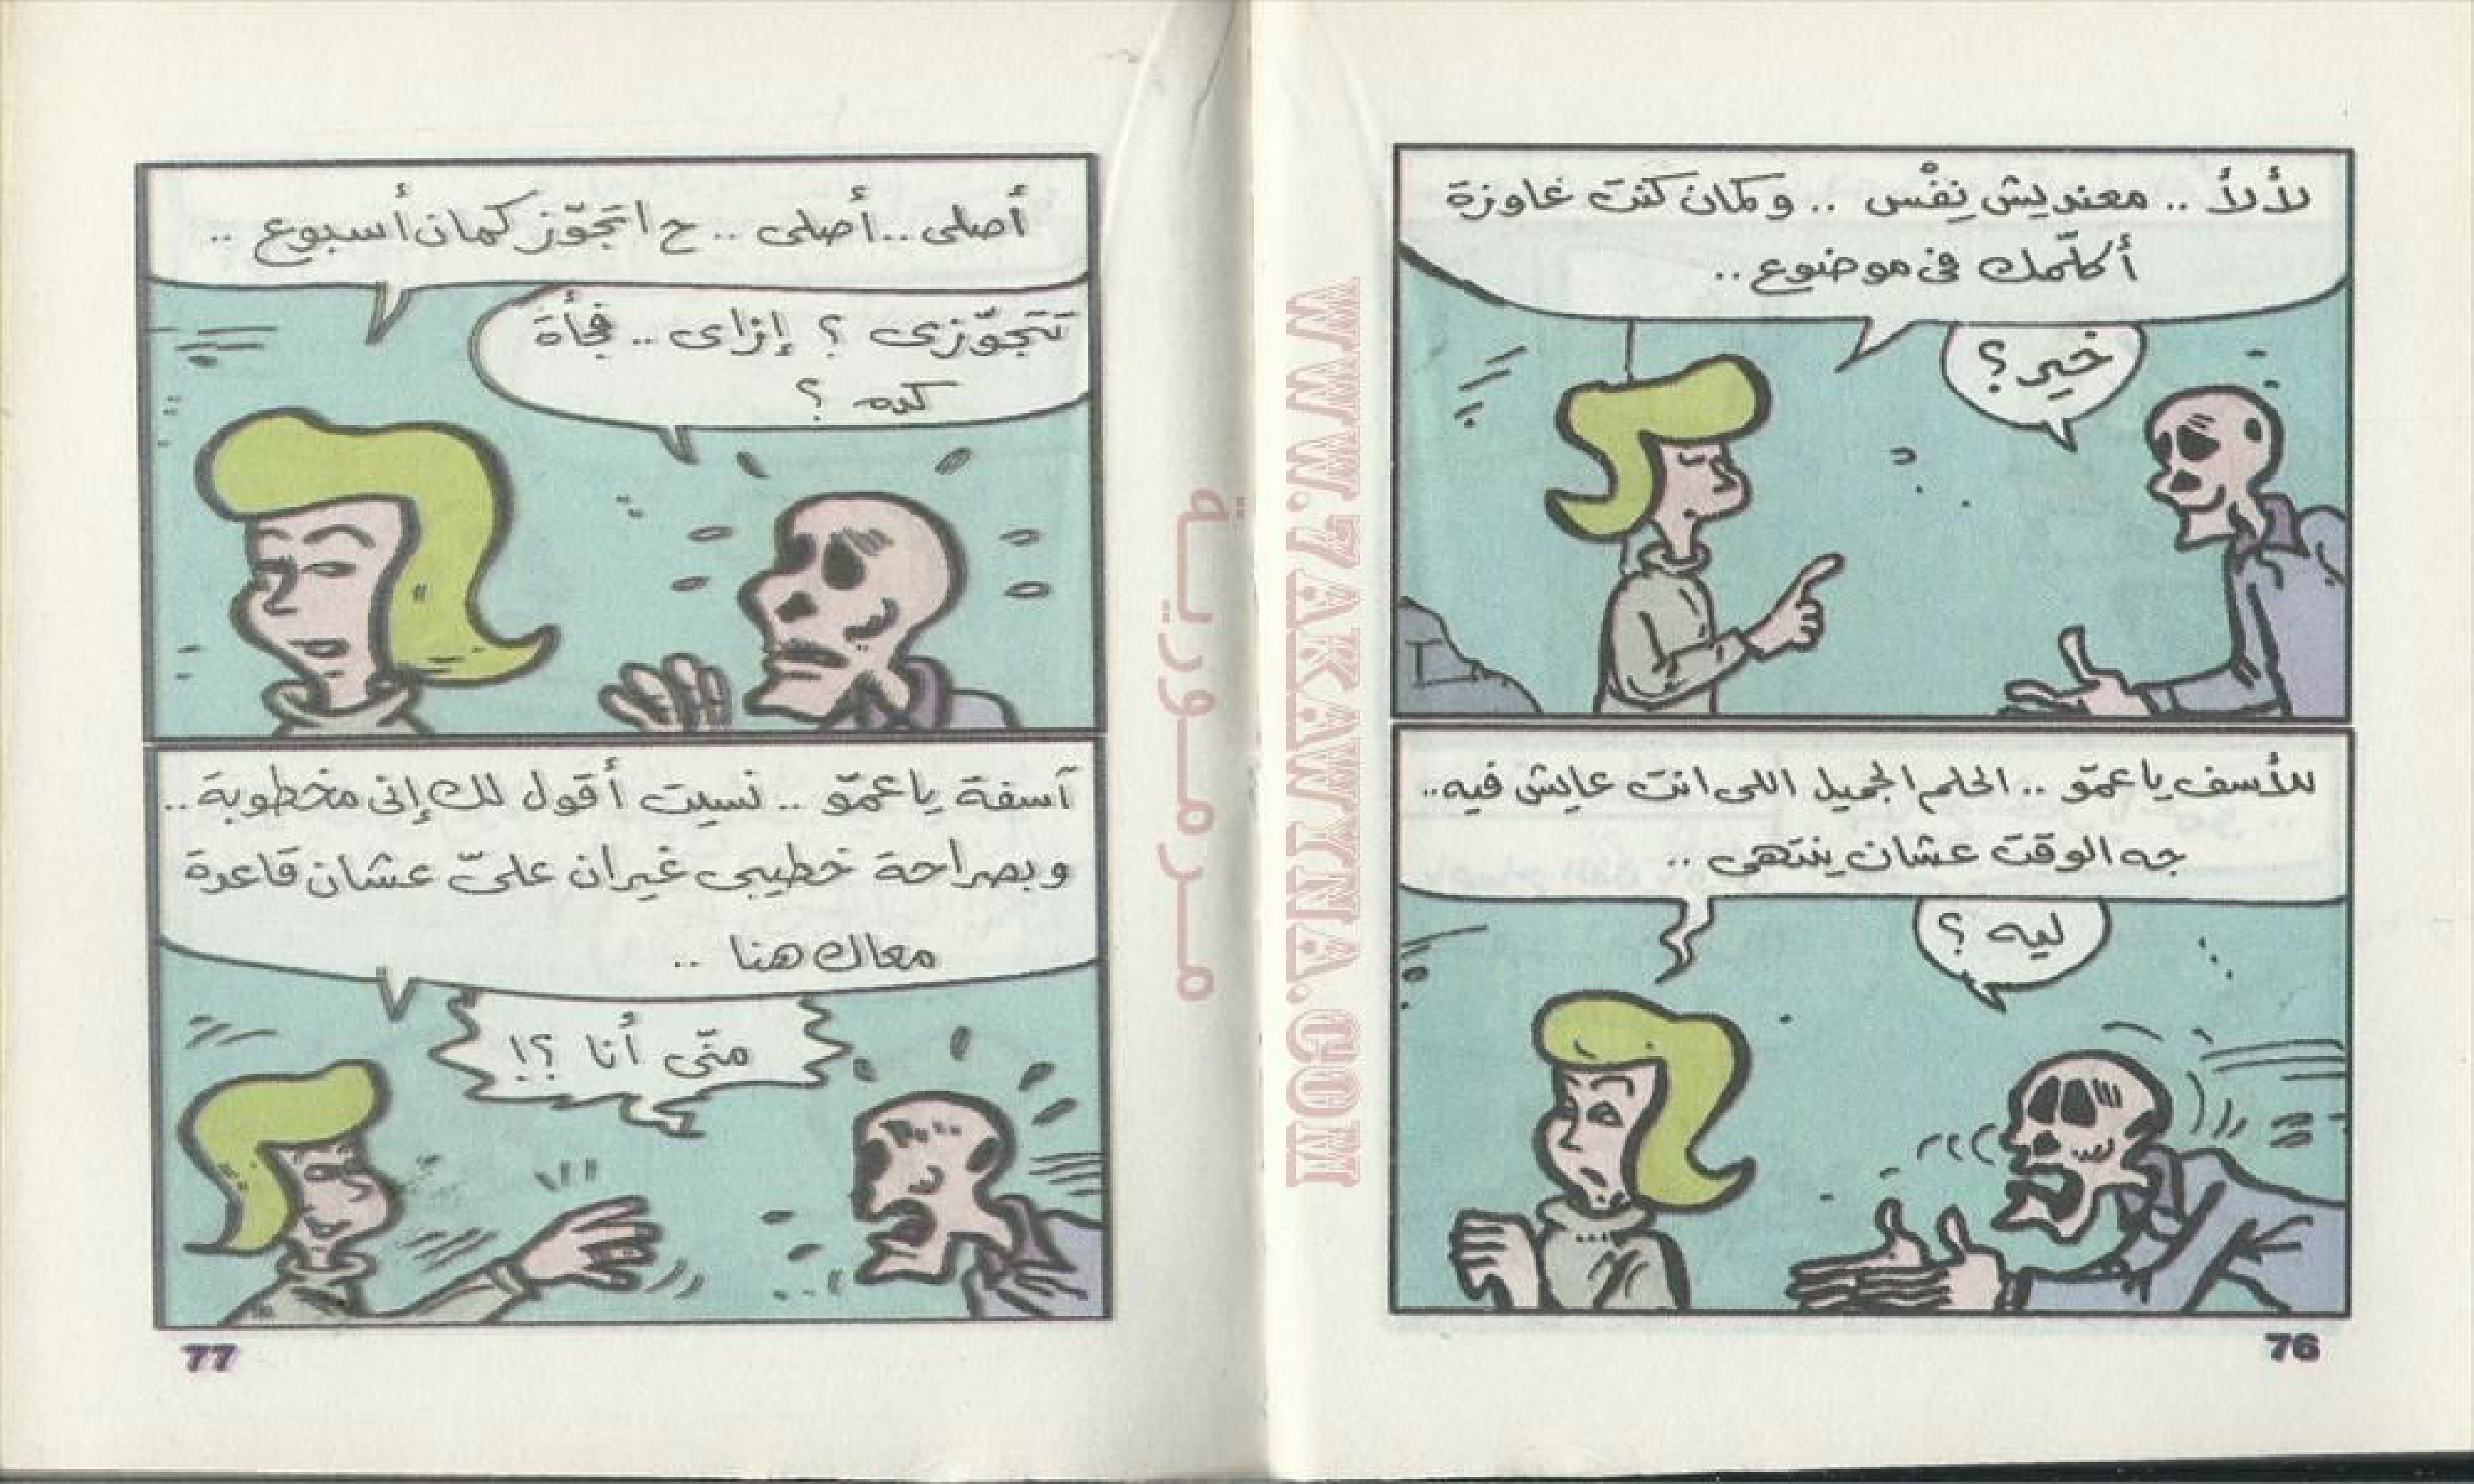 لأ لأ .. معنديش نِفْس .. وكمان كنت عاوزة
أكلّمك فى موضوع ..
خير ؟
للأسف يا عمّو .. الحلم الجميل اللى انت عايش فيه ..
جه الوقت عشان ينتهى ..
ليه ؟
76
أصلى .. أصلى .. ح اتجوّز كمان أسبوع ..
تتجوّزى ؟ إزاى .. فجأة
كده ؟
آسفة يا عمّو .. نسيت أقول لك إنى مخطوبة ..
وبصراحة خطيبى غيران علىّ عشان قاعدة
معاك هنا ..
منّى أنا ؟!
77
WWW.7AKAWYINA.COM
مرمورية